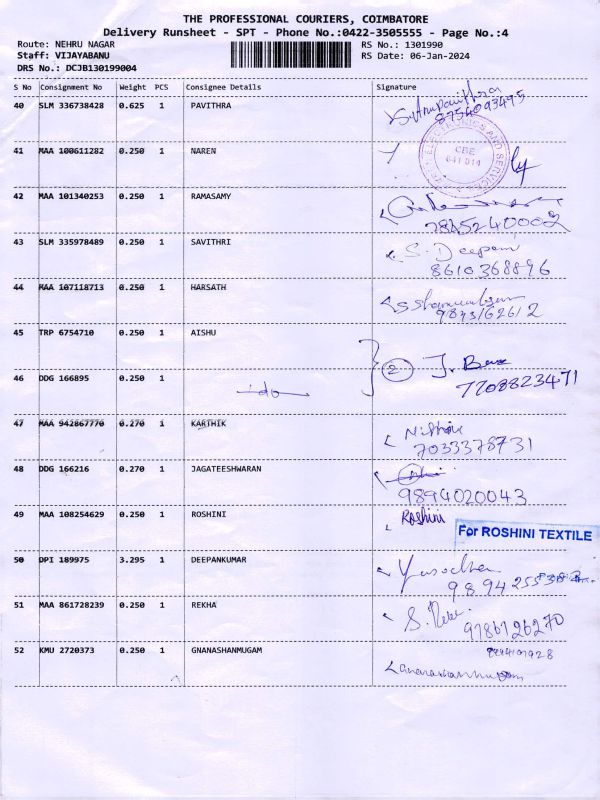 THE PROFESSIONAL COURIERS, COIMBATORE
Delivery Runsheet - SPT - Phone No.:0422-3505555 - Page No.:4
Route: NEHRU NAGAR
RS No.: 1301990
Staff: VIJAYABANU
RS Date: 06-Jan-2024
DRS No.: DCJB130199004
S No Consignment No Weight PCS Consignee Details Signature
40 SLM 336738428 0.625 1 PAVITHRA
8754093495
ELECTRONICS AND SERVICE
CBE
641 014
41 MAA 100611282 0.250 1 NAREN
42 MAA 101340253 0.250 1 RAMASAMY
43 SLM 335978489 0.250 1 SAVITHRI S. Deepam
8610368896
44 MAA 107118713 0.250 1 HARSATH
9843162612
45 TRP 6754710 0.250 1 AISHU
2 J.
46 DDG 166895 0.250 1 7708823471
-ido-
47 MAA 942867770 0.270 1 KARTHIK
7033378731
48 DDG 166216 0.270 1 JAGATEESHWARAN
9894020043
49 MAA 108254629 0.250 1 ROSHINI Roshini
For ROSHINI TEXTILE
50 DPI 189975 3.295 1 DEEPANKUMAR
51 MAA 861728239 0.250 1 REKHA
9786126270
52 KMU 2720373 0.250 1 GNANASHANMUGAM
Gnanashanmugam